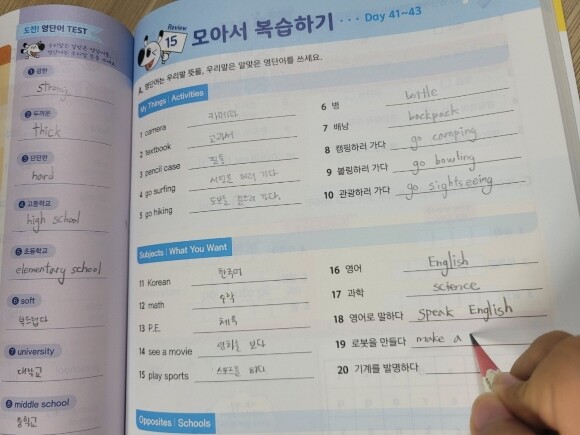 도전! 영단어 TEST
우리말은 알맞은 영단어를,
영단어는 우리말 뜻을 쓰세요.
1 강한
strong
2 두꺼운
thick
3 단단한
hard
4 고등학교
high school
5 초등학교
elementary school
6 soft
부드럽다
7 university
대학교
8 middle school
중학교
Review
15
모아서 복습하기 ··· Day 41~43
A. 영단어는 우리말 뜻을, 우리말은 알맞은 영단어를 쓰세요.
My Things | Activities
1 camera 카메라
2 textbook 교과서
3 pencil case 필통
4 go surfing 서핑을 하러 가다
5 go hiking 가다.
6 병 bottle
7 배낭 backpack
8 캠핑하러 가다 go camping
9 볼링하러 가다 go bowling
10 관광하러 가다 go sightseeing
Subjects | What You Want
11 Korean 한국어
12 math 수학
13 P.E. 체육
14 see a movie 영화를 보다
15 play sports 스포츠를 하다
16 영어 English
17 과학 science
18 영어로 말하다 speak English
19 로봇을 만들다 make a
20 기계를 발명하다
Opposites | Schools